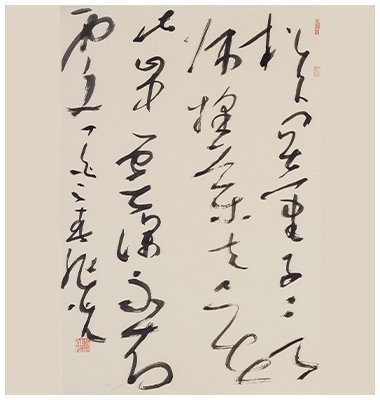 松下問童子言
師採藥去只在
此山中雲深不知
處
之春